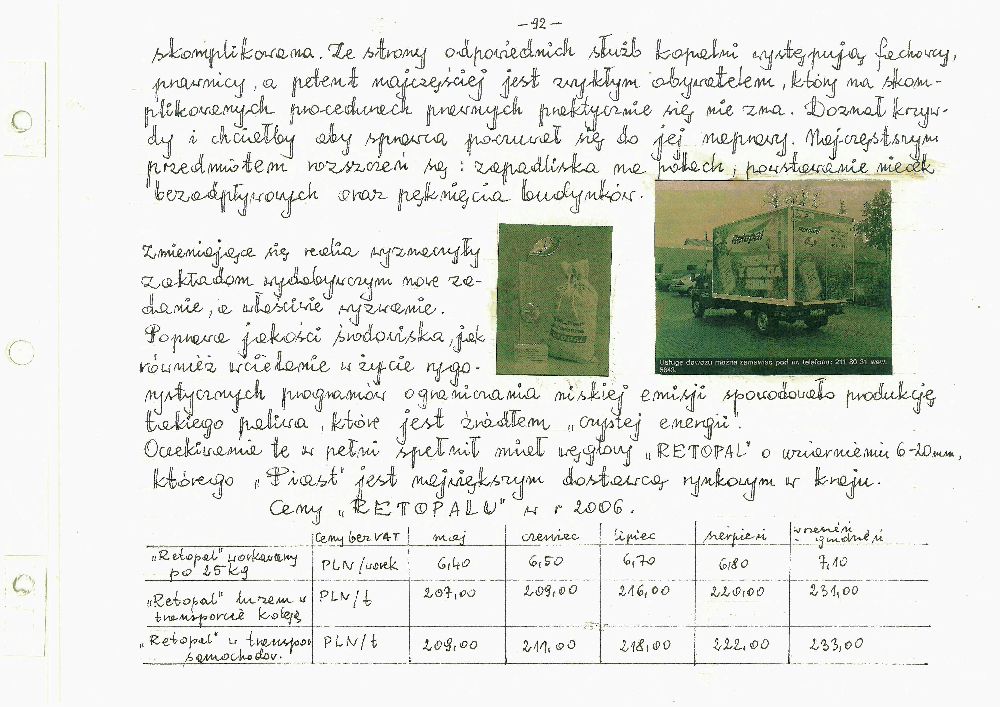 -92-
skomplikowana. Ze strony odpowiednich służb kopalni występują fachowcy,
prawnicy, a petent najczęściej jest zwykłym obywatelem, który na skom-
plikowanych procedurach prawnych praktycznie się nie zna. Doznał krzyw-
dy i chciałby aby sprawca poczuwał się do jej naprawy. Najczęstszym
przedmiotem roszczeń są: zapadliska na polach, powstawanie niecek
bezodpływowych oraz pęknięcia budynków.
Zmieniające się realia wyznaczyły
zakładom wydobywczym nowe za-
danie, a właściwie wyzwanie.
Poprawa jakości środowiska, jak
również wcielanie w życie rygo-
rystycznych programów ograniczania niskiej emisji spowodowało produkcję
takiego paliwa, które jest źródłem „czystej energii".
Oczekiwania te w pełni spełnił miał węglowy „RETOPAL" o uziarnieniu 6-20mm,
którego „Piast" jest największym dostawcą rynkowym w kraju.
Usługę dowozu można zamawiać pod nr. telefonu: 211 80 31 wew.
5643.
Ceny „RETOPALU" w r 2006.
Ceny bez VAT maj czerwiec lipiec sierpień wrzesień - grudzień
„Retopal" workowany po 25 kg PLN/worek 6,40 6,50 6,70 6,80 7,10
„Retopal" luzem w transporcie koleją PLN/t 207,00 209,00 216,00 220,00 231,00
„Retopal" w transpor samochodow. PLN/t 209,00 211,00 218,00 222,00 233,00